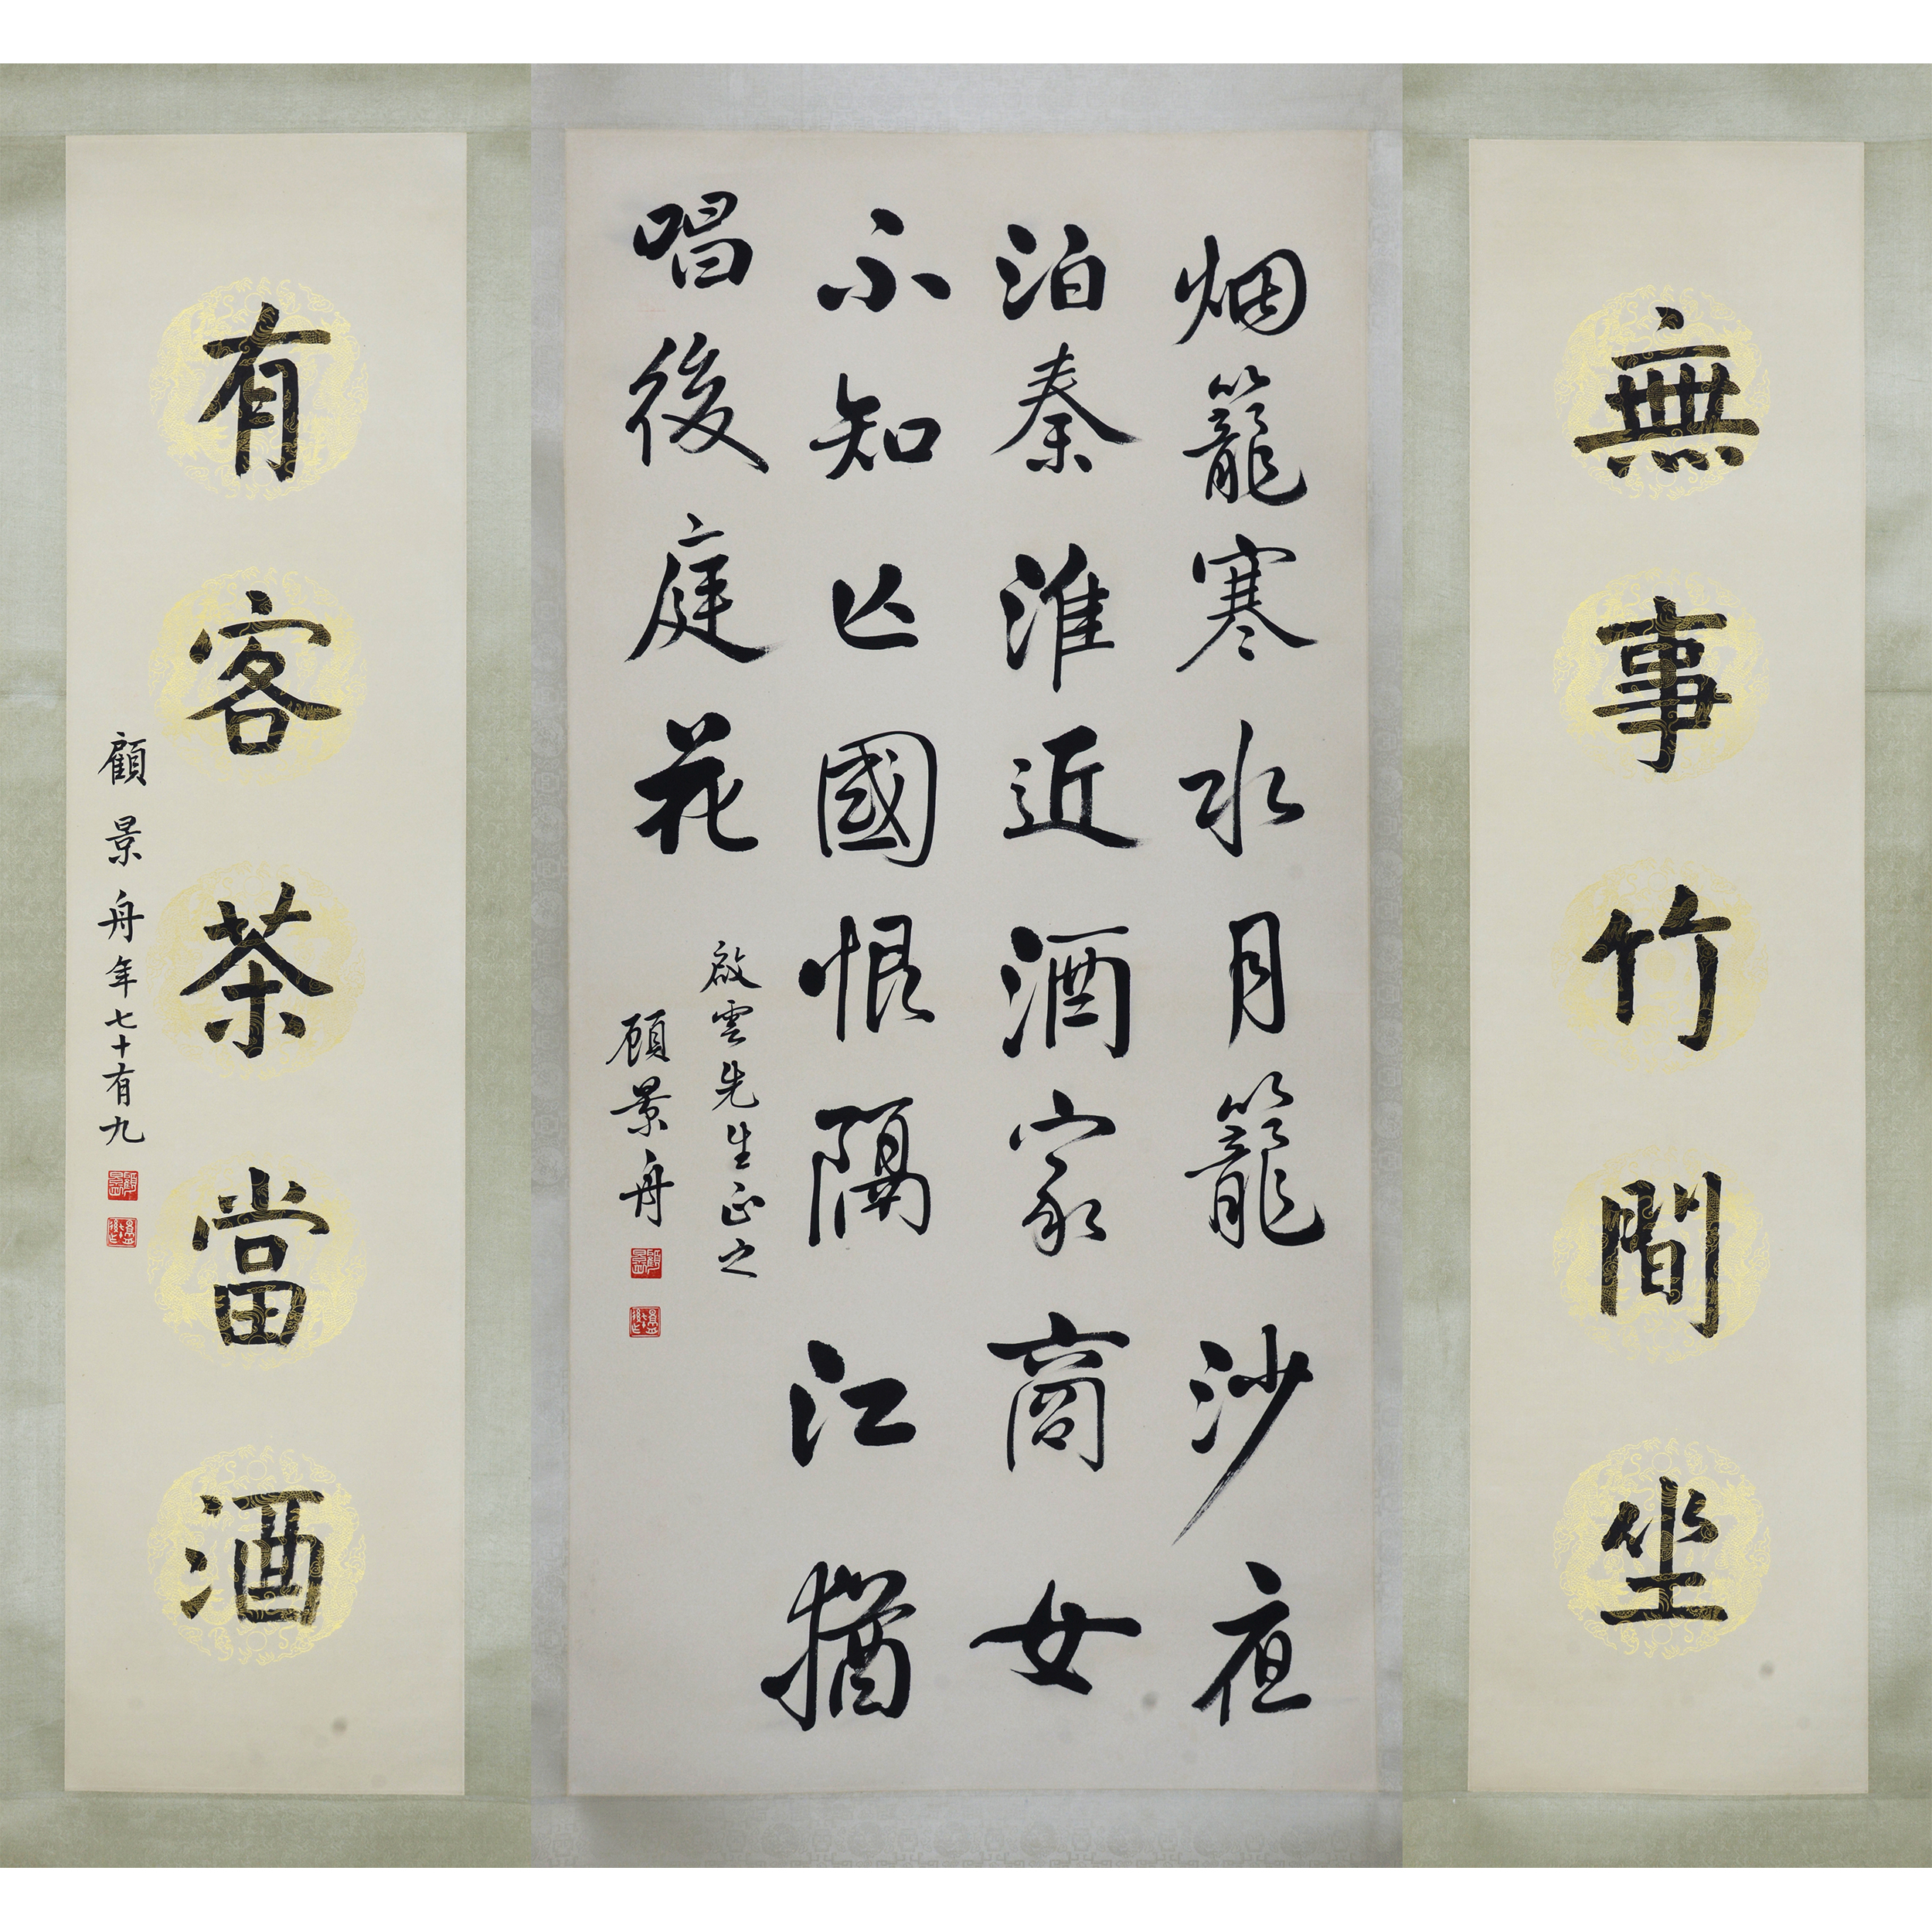 無事竹間坐
烟籠寒水月籠沙夜
泊秦淮近酒家商女
不知亡國恨隔江猶
唱後庭花
啟雲先生正之
顧景舟
有客茶當酒
顧景舟年七十有九